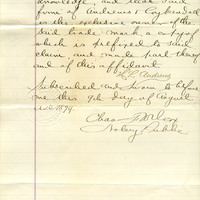 knowledge, and that said
firm of Andrews &
is the exclusive owner of the
said trade mark, a copy of
which is prefixed to said
claim, and made part thereof
and of this affidavit
Andrews
Subscribed and sworn to before
me this 9th day of August
A.D. 1879.
Chas
Notary Public